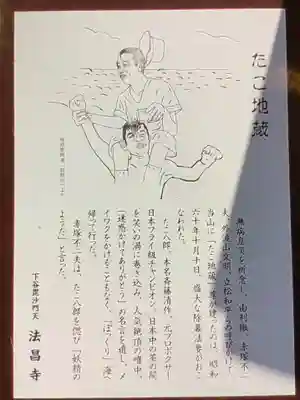 たこ地蔵
無病息災を祈念し、由利徹、赤塚不二
夫、外波山文明、立松和平らの呼びかけ、
当山に「たこ地蔵」尊が建ったのは、昭和
六十年十月十日、盛大な除幕法要がおこ
なわれた。
たこ八郎。本名斉藤清作。元プロボクサー
日本フライ級チャンピオン。日本中の茶の間
を笑いの渦に巻き込み、人気絶頂の唯中、
「迷惑かけてありがとう」の名言を遺し、メ
イワクをかけることもなく、「ぽっくり」海へ
帰って行った。
赤塚不二夫は、たこ八郎を偲び「妖精の
ようだ」と言った。
下谷毘沙門天 法昌寺